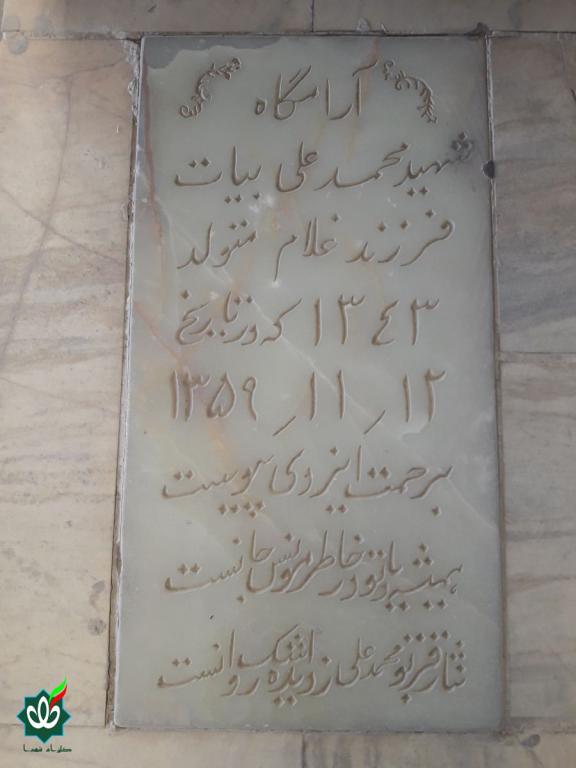 آرامگاه
شهید محمد علی بیات
فرزند غلام متولد
۱۳٤۳ که در تاریخ
۱۲ / ۱۱ / ۱۳۵۹
برحمت ایزدی پیوست
همیشه یاد تو در خاطر مونس جانست
نثار قبر تو محمد علی ز دیده اشک روانست
گلزار شهدا